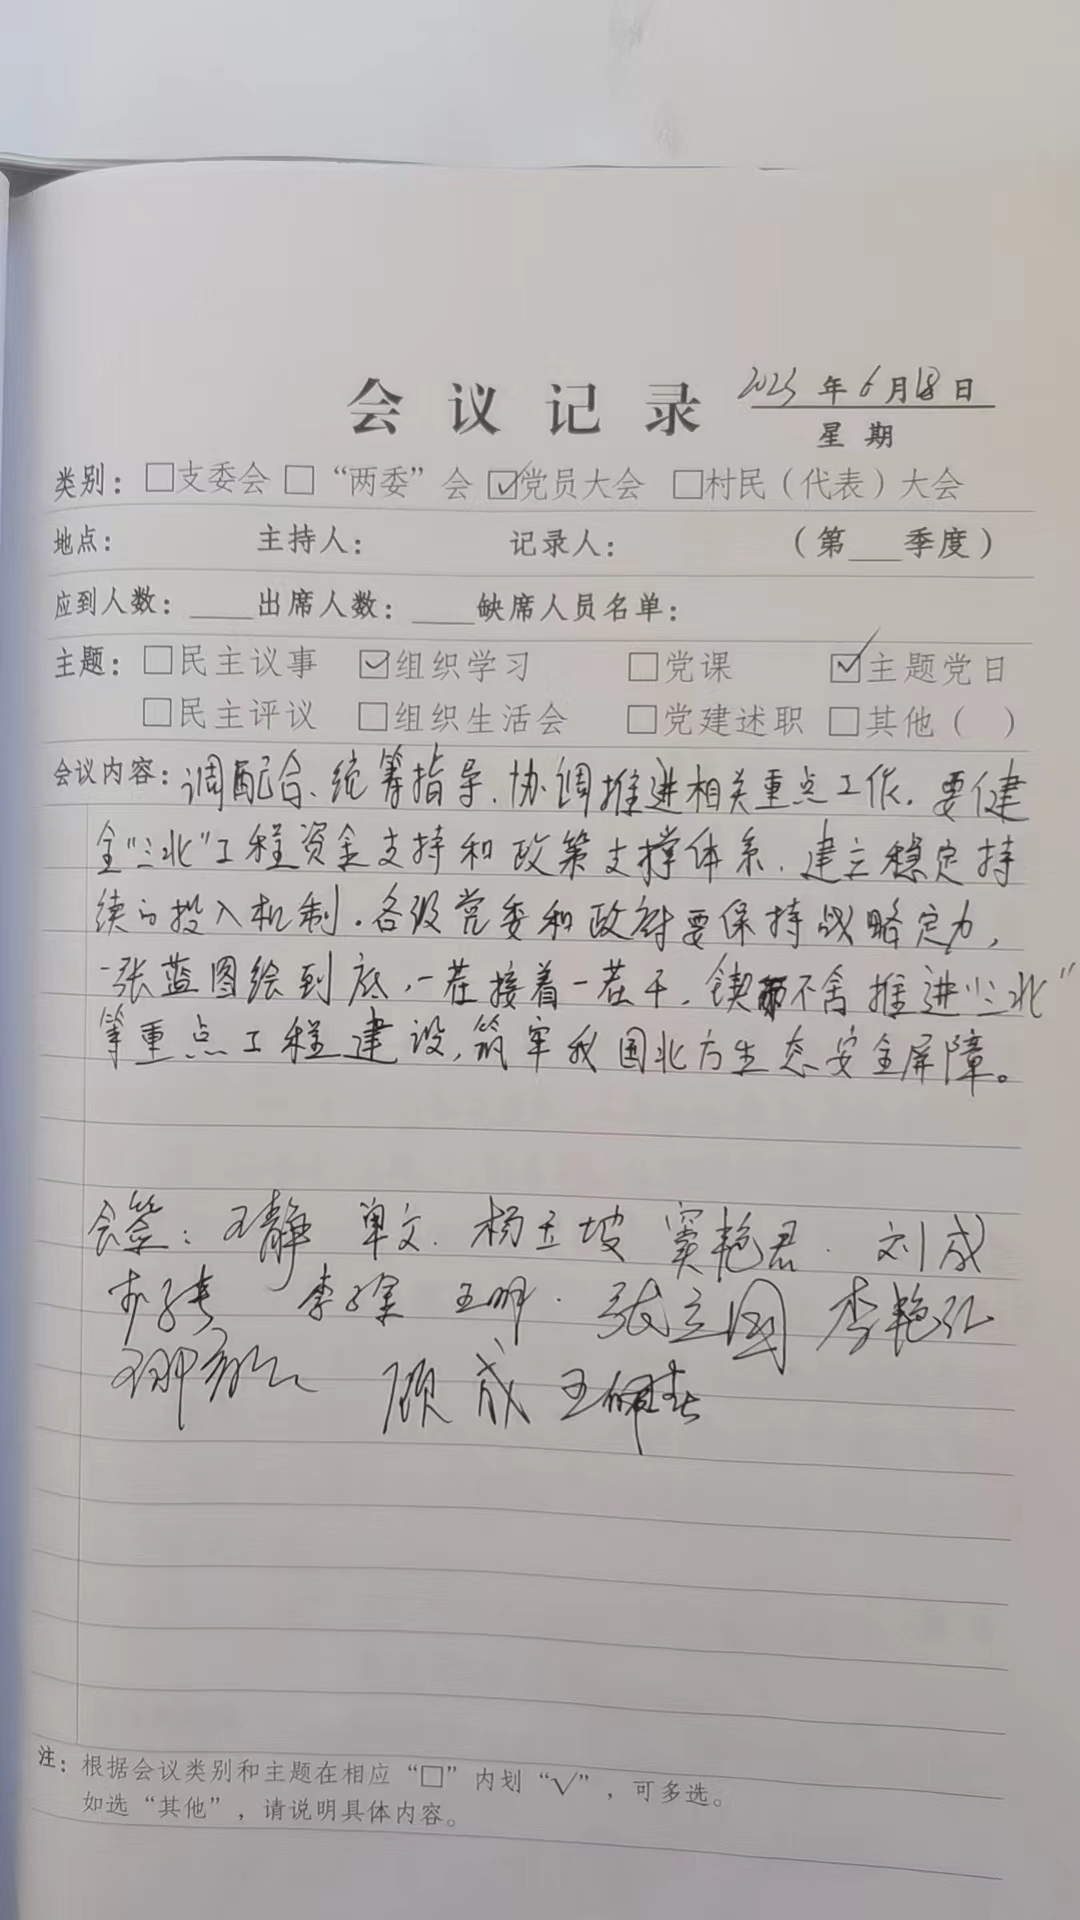 会议记录 2023年6月18日
星期
类别：□支委会 □“两委”会 ☑党员大会 □村民（代表）大会
地点： 主持人： 记录人： （第___季度）
应到人数：____出席人数：____缺席人员名单：
主题：□民主议事 ☑组织学习 □党课 ☑主题党日
□民主评议 □组织生活会 □党建述职 □其他（ ）
会议内容：调配合、统筹指导，协调推进相关重点工作。要健
全“三北”工程资金支持和政策支撑体系，建立稳定持
续的投入机制。各级党委和政府要保持战略定力，
一张蓝图绘到底，一茬接着一茬干，锲而不舍推进“三北”
等重点工程建设，筑牢我国北方生态安全屏障。
会签：王静 单文 杨玉坡 窦艳君 刘成
李 王明 张立国 李艳弘
顾成 王佩春
注：根据会议类别和主题在相应“□”内划“√”，可多选。
如选“其他”，请说明具体内容。